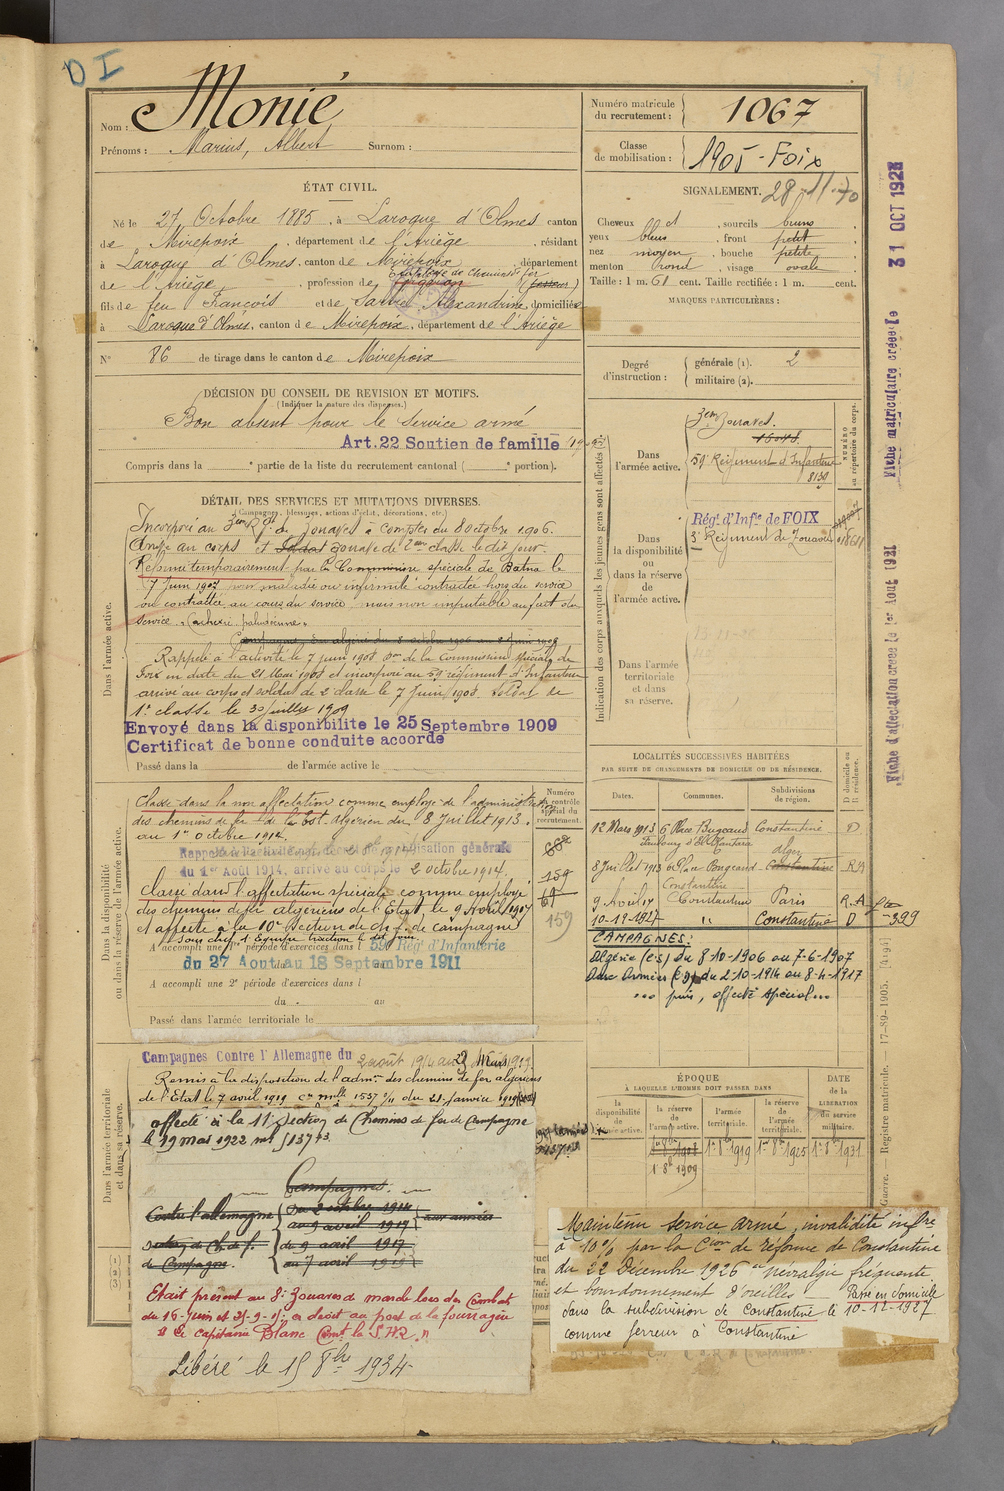 D I
Nom : Monié
Prénoms : Marius, Albert Surnom :
Numéro matricule du recrutement : 1067
Classe de mobilisation : 1905 - Foix
ÉTAT CIVIL.
Né le 27 Octobre 1885, à Laroque d'Olmes canton
de Mirepoix, département de l'Ariège, résidant
à Laroque d'Olmes, canton de Mirepoix, département
de l'Ariège, profession de
fils de feu François et de Alexandrine, domiciliés
à Laroque d'Olmes, canton de Mirepoix, département de l'Ariège
N° 86 de tirage dans le canton de Mirepoix
SIGNALEMENT. 28-11-70
Cheveux , sourcils bruns
yeux bleus , front petit
nez moyen , bouche petite
menton rond , visage ovale
Taille : 1 m. 61 cent. Taille rectifiée : 1 m. cent.
MARQUES PARTICULIÈRES :
Degré d'instruction : générale (1). 2
militaire (2).
DÉCISION DU CONSEIL DE REVISION ET MOTIFS.
(Indiquer la nature des dispenses.)
Bon absent pour le service armé
Art. 22 Soutien de famille
Compris dans la e partie de la liste du recrutement cantonal ( e portion).
DÉTAIL DES SERVICES ET MUTATIONS DIVERSES.
(Campagnes, blessures, actions d'éclat, décorations, etc.)
Dans l'armée active.
Incorporé au 3eme Rgt de Zouaves à compter du 8 octobre 1906.
Arrivé au corps et Soldat zouave de 2eme classe le dit jour.
Réformé temporairement par la Commission spéciale de Batna le
7 Juin 1907 pour maladie ou infirmité contractée hors du service
ou contractée au cours du service mais non imputable au fait du
service « cachexie paludéenne »
Campagnes, En algérie du 8 octobre 1906 au
Rappelé à l'activité le 7 juin 1908 Don de la Commission spéciale de
Foix en date du 21 Mai 1908 et incorporé au 59e régiment d'Infanterie
arrivé au corps et soldat de 2e classe le 7 juin 1908. Soldat de
1e classe le 30 juillet 1909
Envoyé dans la disponibilité le 25 Septembre 1909
Certificat de bonne conduite accordé
Passé dans la de l'armée active le
Indication des corps auxquels les jeunes gens sont affectés
NUMÉRO au répertoire du corps.
Dans l'armée active.
3em Zouaves.
59e Régiment d'Infanterie
8139
Dans la disponibilité ou dans la réserve de l'armée active.
Régt d'Infie de FOIX
3e Régiment de Zouaves
Dans l'armée territoriale et dans sa réserve.
Dans la disponibilité ou dans la réserve de l'armée active.
Numéro au contrôle spécial du recrutement.
Classé dans la non affectation comme employé de l'administration
des chemins de fer de l'Est algérien du 8 Juillet 1913.
au 1er octobre 1914.
Rappelé à l'activité mobilisation générale
du 1er Août 1914, arrivé au corps le 2 octobre 1914.
Classé dans l'affectation spéciale comme employé
des chemins de fer algériens de l'Etat, le 9 Avril 1917
et affecté à la 10e Section de Ch. f. de campagne
A accompli une 1re période d'exercices dans l 59e Rég' d'Infanterie
du 27 Aout au 18 Septembre 1911
A accompli une 2e période d'exercices dans l
du au
Passé dans l'armée territoriale le
159
61
159
LOCALITÉS SUCCESSIVES HABITÉES
PAR SUITE DE CHANGEMENTS DE DOMICILE OU DE RÉSIDENCE.
Dates. Communes. Subdivisions de région. D domicile ou R résidence.
12 Mars 1913 6 Place Bugeaud Constantine D
Faubourg d'El Kantara
8 Juillet 1913 6 Place Bugeaud Constantine alger R
Constantine
9 Avril 17 Constantine Paris R.A
10-12-1927 " Constantine D 329
CAMPAGNES :
Algérie du 8-10-1906 au 7-6-1907
Aux Armées du 2-10-1914 au 8-4-1917
... puis, affecté spécial...
Dans l'armée territoriale et dans sa réserve.
Campagnes Contre l'Allemagne du 2 août 1914 au 23 Mars 1919.
Remis à la disposition de l'admon des chemins de fer algériens
de l'Etat le 7 avril 1919 du 21 janvier 1919
affecté à la 11e Section de Chemins de fer de Campagne
le 19 mai 1922
Campagnes.
Contre l'allemagne du 2 octobre 1914 au 9 avril 1917 aux armées
Section de Ch. de f. de Campagne. du 9 avril 1917 au 7 avril 1919
Etait présent au 8e Zouaves de marche lors des Combats
du 16 juin et 25-9-15 a droit au port de la fourragère
le capitaine Blanc Comt la S.H.R. "
Libéré le 15 8bre 1934
ÉPOQUE
À LAQUELLE L'HOMME DOIT PASSER DANS
la disponibilité de l'armée active. la réserve de l'armée active. l'armée territoriale. la réserve de l'armée territoriale.
DATE de la LIBÉRATION du service militaire.
1er 8bre 1909 1er 8bre 1919 1er 8bre 1925 1er 8bre 1931
Maintenu service armé, invalidité infre
à 10% par la Cion de réforme de Constantine
du 22 Décembre 1926 névralgie fréquente
et bourdonnement d'oreilles — Passé en domicile
dans la subdivision de Constantine le 10-12-1927
comme ferreur à Constantine
31 OCT 1928
Fiche matriculaire créée le
Fiche d'affectation créée le 1er Aout 1921
Guerre. — Registre matricule. — 17-89-1905. [A194]